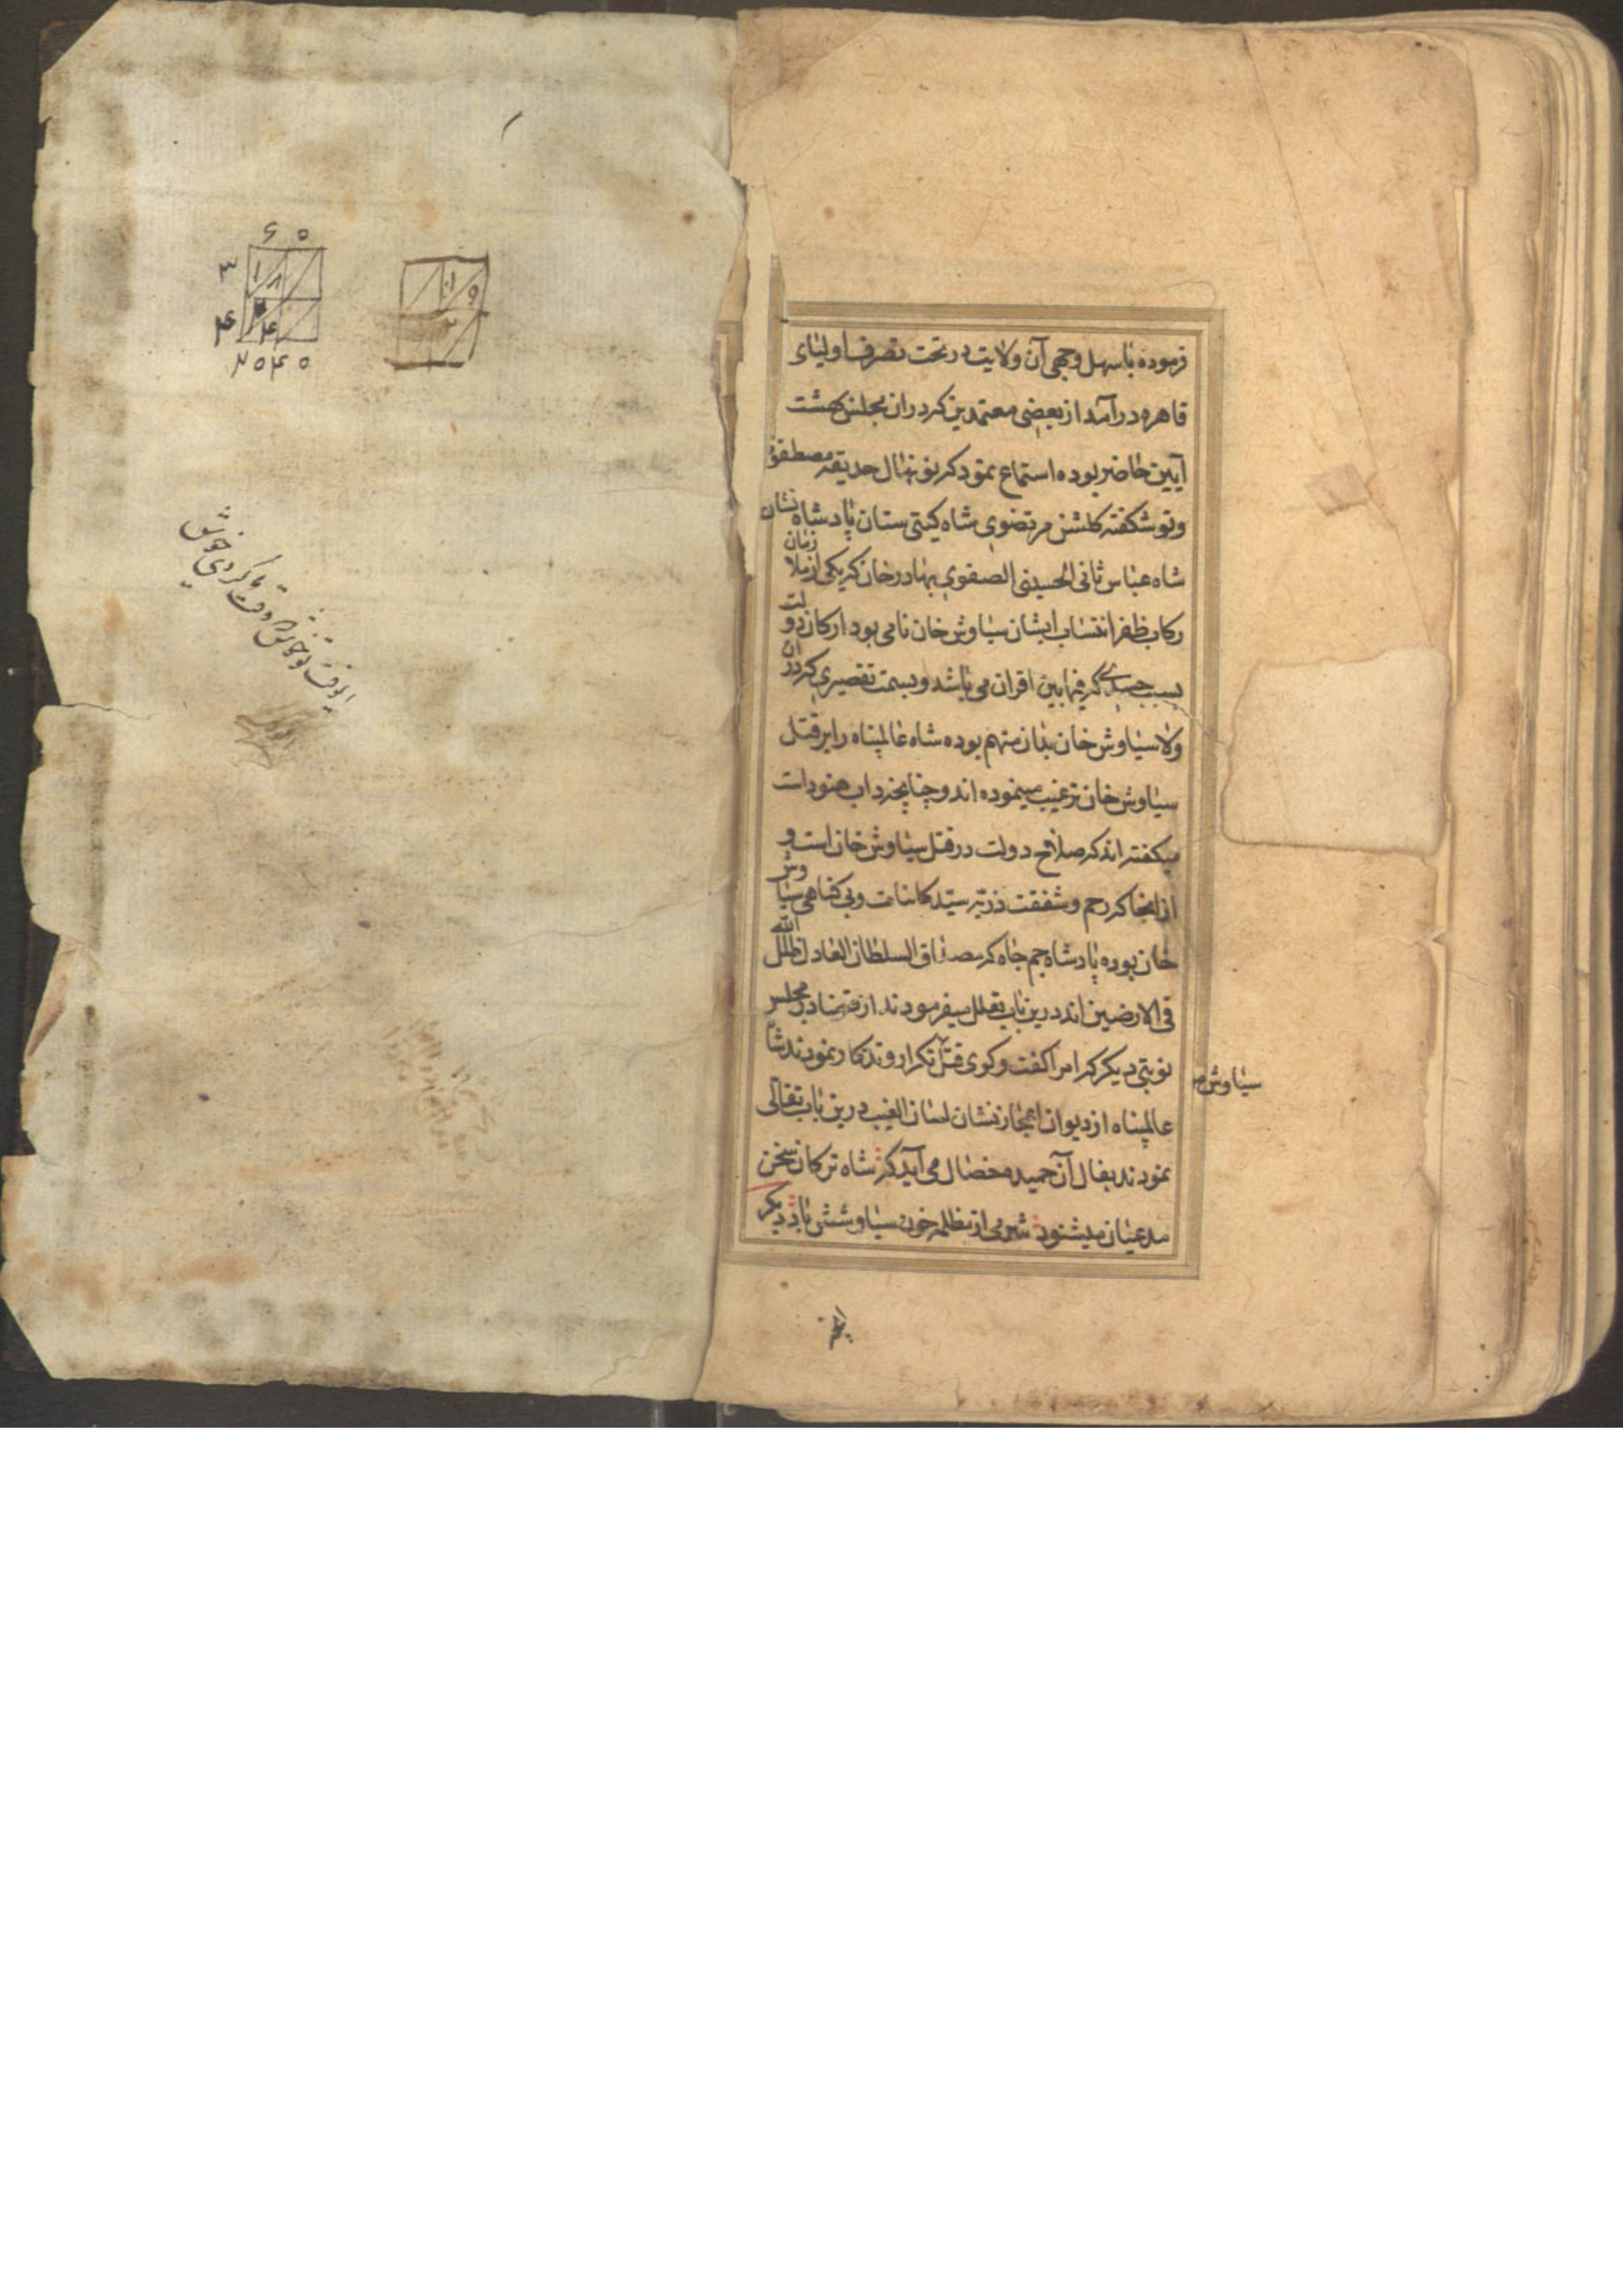 فرموده باسهل وجهی آن ولایت در تحت تصرف اولیای
قاهره در آمد از بعضی معتمدین که در ان مجلس بهشت
آیین حاضر بوده استماع نمود که نو نهال حدیقه مصطفوی
و نو شکفته کلشن مرتضوی شاه کیتی ستان پادشاه نشان
شاه عباس ثانی الحسینی الصفوی بهادر خان که یکی از ملازمان
رکاب ظفر انتساب ایشان سیاوش خان نامی بود ارکان دولت
بسبب حسدی که فیمابین اقران می باشد و بسمت تقصیری که در ان
ولا سیاوش خان بدان متهم بوده شاه عالمپناه را بر قتل
سیاوش خان ترغیب مینموده اند و چنانچه داب حسود است
میکفته اند که صلاح دولت در قتل سیاوش خان است و
از انجا که رحم و شفقت ذریه سید کاینات و بی کناهی سیاوش
خان بوده پادشاه جم جاه که مصداق السلطان العادل ظل الله
فی الارضین اند درین باب تعلل میفرمودند از قضا در مجلس
نوبتی دیکر که امرا کفت و کوی قتل تکرار و تذکار نمودند شاه
سیاوش
عالمپناه از دیوان اعجاز نشان لسان الغیب درین باب تفالی
نمودند بفال آن حمیده خصال می آید که شاه ترکان سخن
مدعیان میشنود شرمی از مظلمه خون سیاوشش باد دیکر
۶ ۵
۳
۴
۲ ۵ ۴ ۵